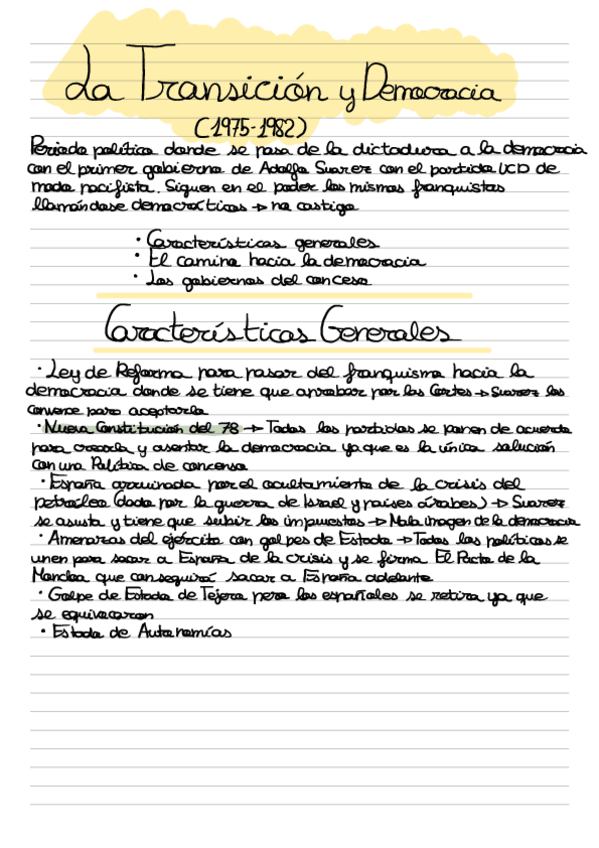 La Transición y Democracia
(1975-1982)
Periodo político donde se pasa de la dictadura a la democracia
con el primer gobierno de Adolfo Suarez con el partido UCD de
modo pacifista. Siguen en el poder los mismos franquistas
llamándose democráticos → no castigo
· Características generales
· El camino hacia la democracia
· Los gobiernos del conceso
Características Generales
· Ley de Reforma para pasar del franquismo hacia la
democracia donde se tiene que aprobar por las Cortes → Suarez los
convence para aceptarla
· Nueva Constitución del 78 → Todos los partidos se ponen de acuerdo
para crearla y asentar la democracia ya que es la única solución
con una Política de concenso
· España arruinada por el ocultamiento de la crisis del
petróleo (dado por la guerra de Israel y países árabes) → Suarez
se asusta y tiene que subir los impuestos → Mala imagen de la democracia
· Amenazas del ejército con golpes de Estado → Todos los políticos se
unen para sacar a España de la crisis y se firma El Pacto de la
Moncloa que conseguirá sacar a España adelante
· Golpe de Estado de Tejero pero los españoles se retira ya que
se equivocaron
· Estado de Autonomías